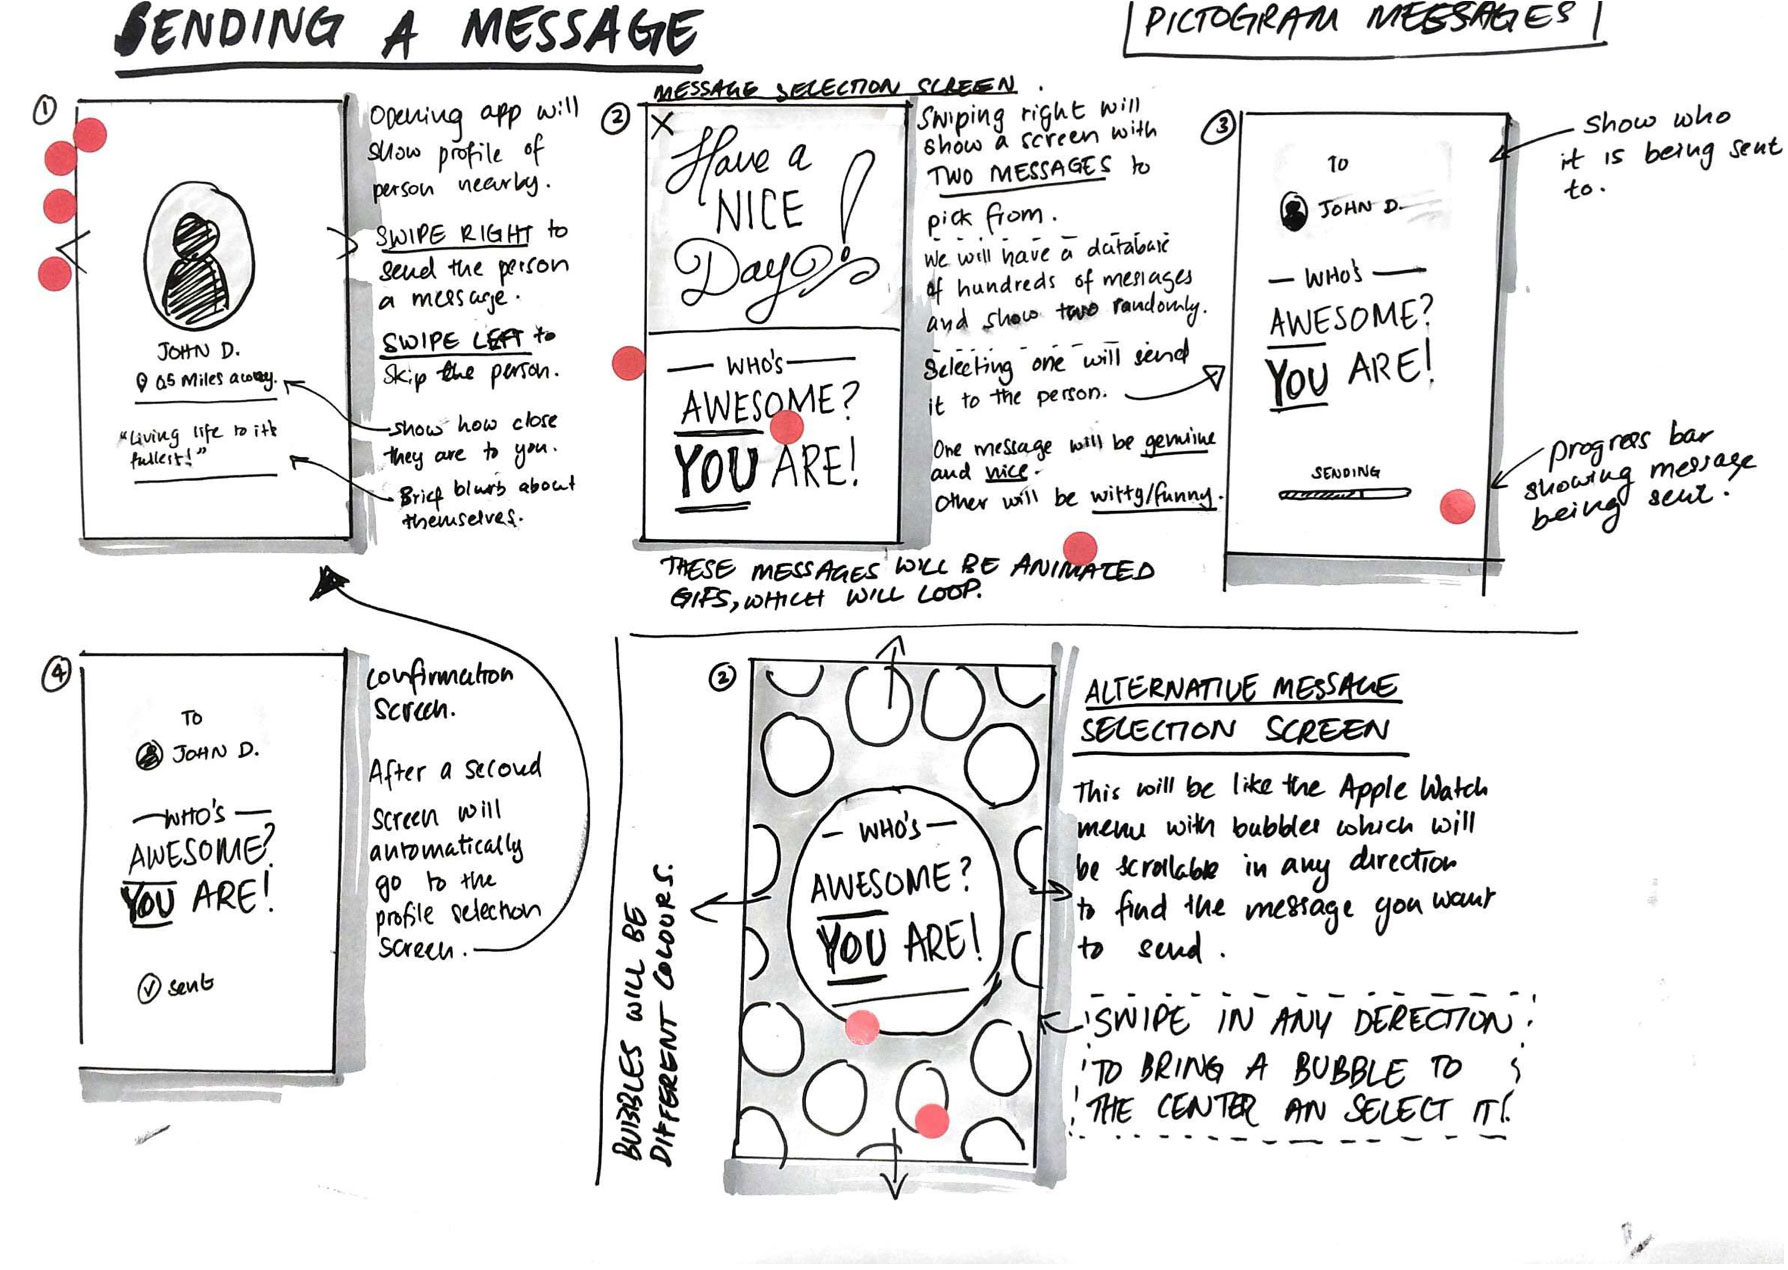 SENDING A MESSAGE
PICTOGRAM MESSAGES
1
JOHN D.
0.5 Miles away.
"Living life to it's
fullest!"
Opening app will
show profile of
person nearby.
SWIPE RIGHT to
send the person
a message.
SWIPE LEFT to
skip the person.
show how close
they are to you.
Brief blurb about
themselves.
MESSAGE SELECTION SCREEN.
2
X
Have a
NICE
Day!
WHO'S
AWESOME?
YOU ARE!
Swiping right will
show a screen with
TWO MESSAGES to
pick from.
We will have a database
of hundreds of messages
and show two randomly.
Selecting one will send
it to the person.
One message will be genuine
and nice.
Other will be witty/funny.
THESE MESSAGES WILL BE ANIMATED
GIFS, WHICH WILL LOOP.
3
TO
JOHN D.
WHO'S
AWESOME?
YOU ARE!
SENDING
Show who
it is being sent
to.
progress bar
showing message
being sent.
4
TO
JOHN D.
WHO'S
AWESOME?
YOU ARE!
sent
Confirmation
Screen.
After a second
screen will
automatically
go to the
profile selection
screen.
BUBBLES WILL BE
DIFFERENT COLOURS.
2
WHO'S
AWESOME?
YOU ARE!
ALTERNATIVE MESSAGE
SELECTION SCREEN
This will be like the Apple Watch
menu with bubbles which will
be scrollable in any direction
to find the message you want
to send.
SWIPE IN ANY DERECTION
TO BRING A BUBBLE TO
THE CENTER AN SELECT IT!